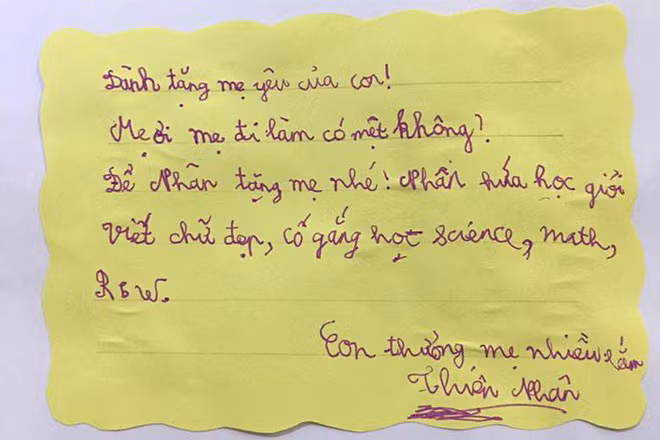 Dành tặng mẹ yêu của con!
Mẹ ơi mẹ đi làm có mệt không?
Để Nhân tặng mẹ nhé! Nhân hứa học giỏi
viết chữ đẹp, cố gắng học science, math,
R&W.
Con thương mẹ nhiều lắm
Thiên Nhân